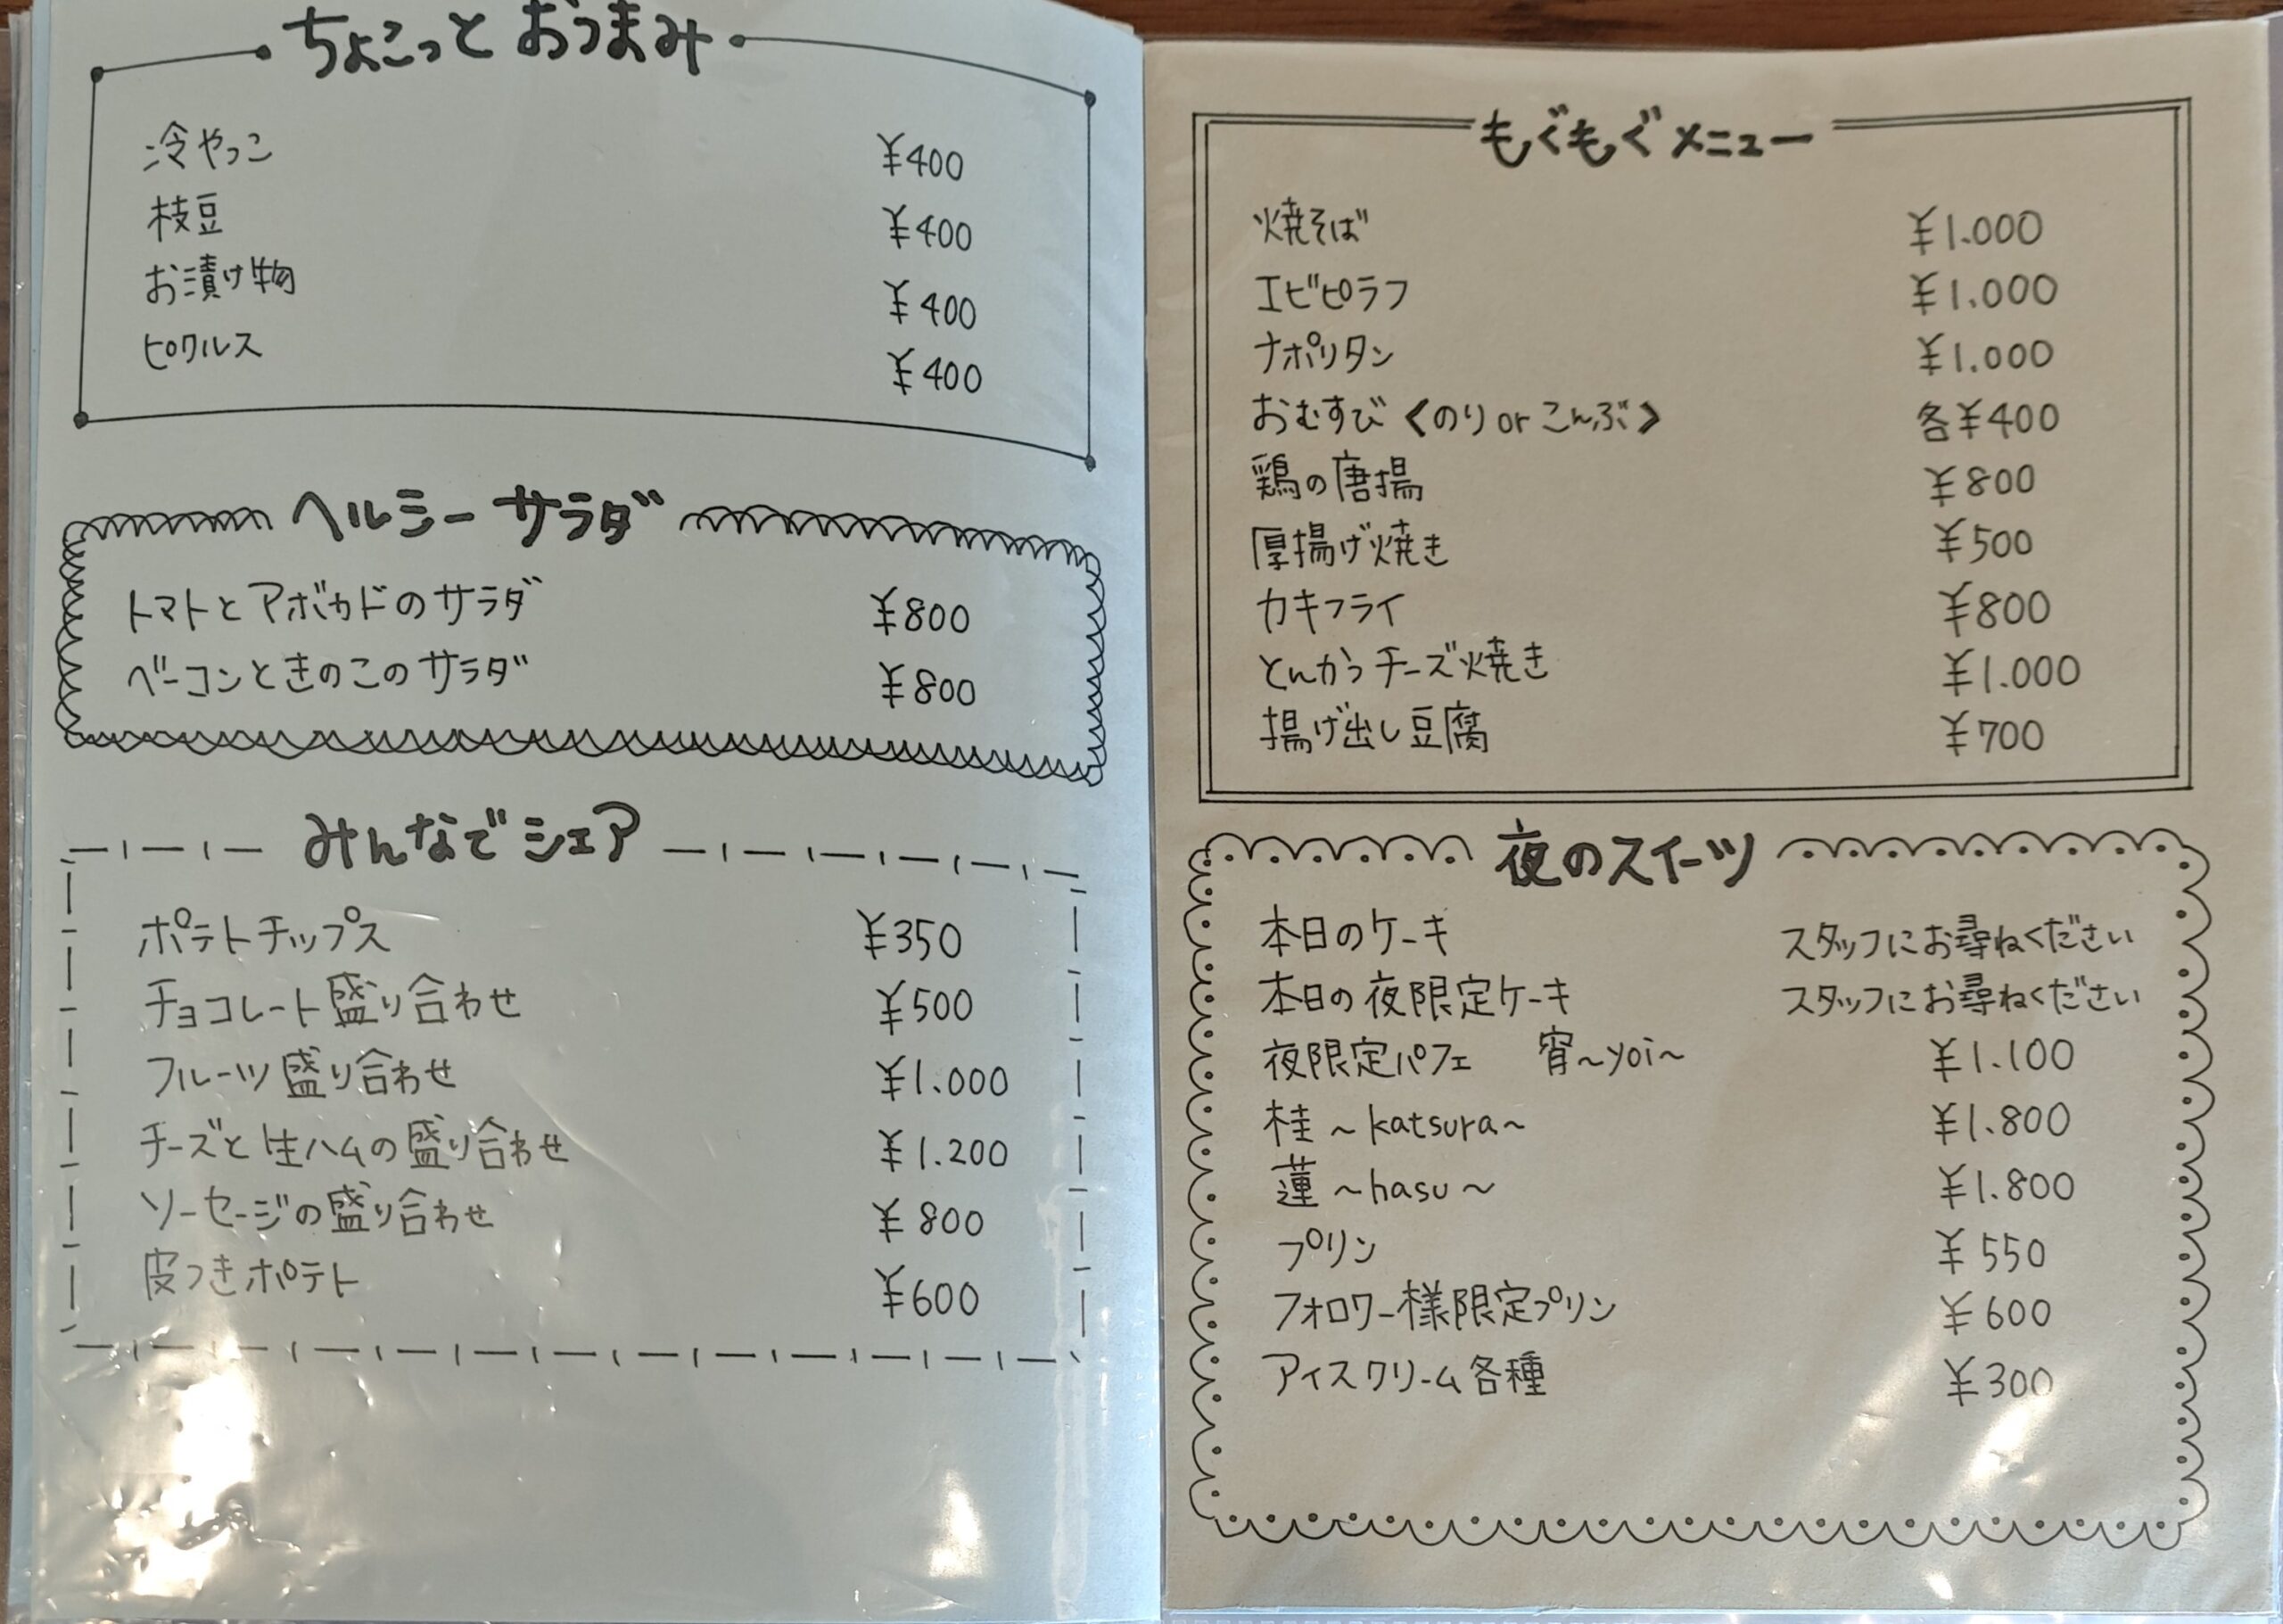 ちょこっと おつまみ
冷やっこ ¥400
枝豆 ¥400
お漬け物 ¥400
ピクルス ¥400
ヘルシー サラダ
トマトとアボカドのサラダ ¥800
ベーコンときのこのサラダ ¥800
みんなでシェア
ポテトチップス ¥350
チョコレート盛り合わせ ¥500
フルーツ盛り合わせ ¥1.000
チーズと生ハムの盛り合わせ ¥1.200
ソーセージの盛り合わせ ¥800
皮つきポテト ¥600
もぐもぐメニュー
焼そば ¥1.000
エビピラフ ¥1.000
ナポリタン ¥1.000
おむすび〈のり or こんぶ〉 各¥400
鶏の唐揚 ¥800
厚揚げ焼き ¥500
カキフライ ¥800
とんかつチーズ焼き ¥1.000
揚げ出し豆腐 ¥700
夜のスイーツ
本日のケーキ スタッフにお尋ねください
本日の夜限定ケーキ スタッフにお尋ねください
夜限定パフェ 宵~yoi~ ¥1.100
桂~katsura~ ¥1.800
蓮~hasu~ ¥1.800
プリン ¥550
フォロワー様限定プリン ¥600
アイスクリーム各種 ¥300